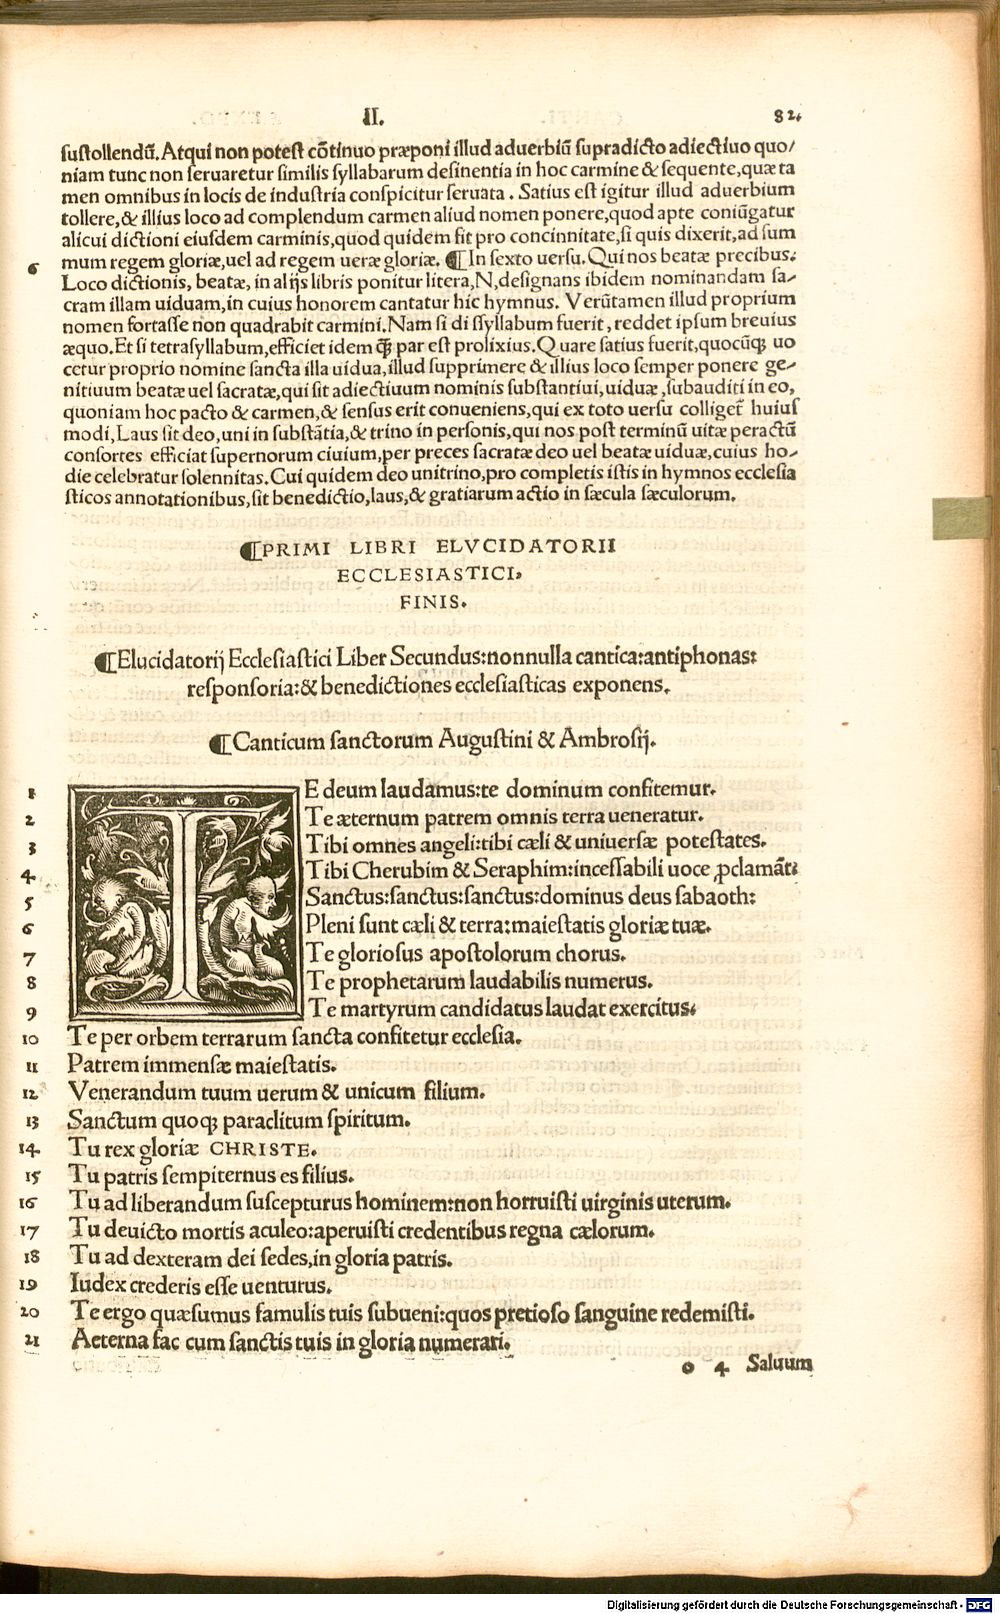 II. 82.
sustollendū. Atqui non potest cōtinuo præponi illud aduerbiū supradicto adiectiuo quo/
niam tunc non seruaretur similis syllabarum desinentia in hoc carmine & sequente, quæ ta
men omnibus in locis de industria conspicitur seruata. Satius est igitur illud aduerbium
tollere, & illius loco ad complendum carmen aliud nomen ponere, quod apte coniūgatur
alicui dictioni eiusdem carminis, quod quidem fit pro concinnitate, si quis dixerit, ad sum
6 mum regem gloriæ, uel ad regem ueræ gloriæ. ¶ In sexto uersu. Qui nos beatæ precibus:
Loco dictionis, beatæ, in alijs libris ponitur litera, N, designans ibidem nominandam sa-
cram illam uiduam, in cuius honorem cantatur hic hymnus. Verūtamen illud proprium
nomen fortasse non quadrabit carmini. Nam si dissyllabum fuerit, reddet ipsum breuius
æquo. Et si tetrasyllabum, efficiet idem q̄ȝ par est prolixius. Quare satius fuerit, quocūqꝫ uo
cetur proprio nomine sancta illa uidua, illud supprimere & illius loco semper ponere ge-
nitiuum beatæ uel sacratæ, qui sit adiectiuum nominis substantiui, uiduæ, subauditi in eo,
quoniam hoc pacto & carmen, & sensus erit conueniens, qui ex toto uersu colliget̄ huius
modi, Laus sit deo, uni in substātia, & trino in personis, qui nos post terminū uitæ peractū
consortes efficiat supernorum ciuium, per preces sacratæ deo uel beatæ uiduæ, cuius ho-
die celebratur solennitas. Cui quidem deo unitrino, pro completis istis in hymnos ecclesia
sticos annotationibus, sit benedictio, laus, & gratiarum actio in sæcula sæculorum.
¶PRIMI LIBRI ELVCIDATORII
ECCLESIASTICI,
FINIS.
¶Elucidatorij Ecclesiastici Liber Secundus: nonnulla cantica: antiphonas:
responsoria: & benedictiones ecclesiasticas exponens.
¶Canticum sanctorum Augustini & Ambrosij.
1 TE deum laudamus: te dominum confitemur.
2 Te æternum patrem omnis terra ueneratur.
3 Tibi omnes angeli: tibi cæli & uniuersæ potestates.
4 Tibi Cherubim & Seraphim: incessabili uoce ꝓclamāt:
5 Sanctus: sanctus: sanctus: dominus deus sabaoth:
6 Pleni sunt cæli & terra: maiestatis gloriæ tuæ.
7 Te gloriosus apostolorum chorus.
8 Te prophetarum laudabilis numerus.
9 Te martyrum candidatus laudat exercitus:
10 Te per orbem terrarum sancta confitetur ecclesia.
11 Patrem immensæ maiestatis.
12 Venerandum tuum uerum & unicum filium.
13 Sanctum quoqꝫ paraclitum spiritum.
14 Tu rex gloriæ CHRISTE.
15 Tu patris sempiternus es filius.
16 Tu ad liberandum suscepturus hominem: non horruisti uirginis uterum.
17 Tu deuicto mortis aculeo: aperuisti credentibus regna cælorum.
18 Tu ad dexteram dei sedes, in gloria patris.
19 Iudex crederis esse uenturus.
20 Te ergo quæsumus famulis tuis subueni: quos pretioso sanguine redemisti.
21 Aeterna fac cum sanctis tuis in gloria numerari.
o 4 Saluum
Digitalisierung gefördert durch die Deutsche Forschungsgemeinschaft - DFG